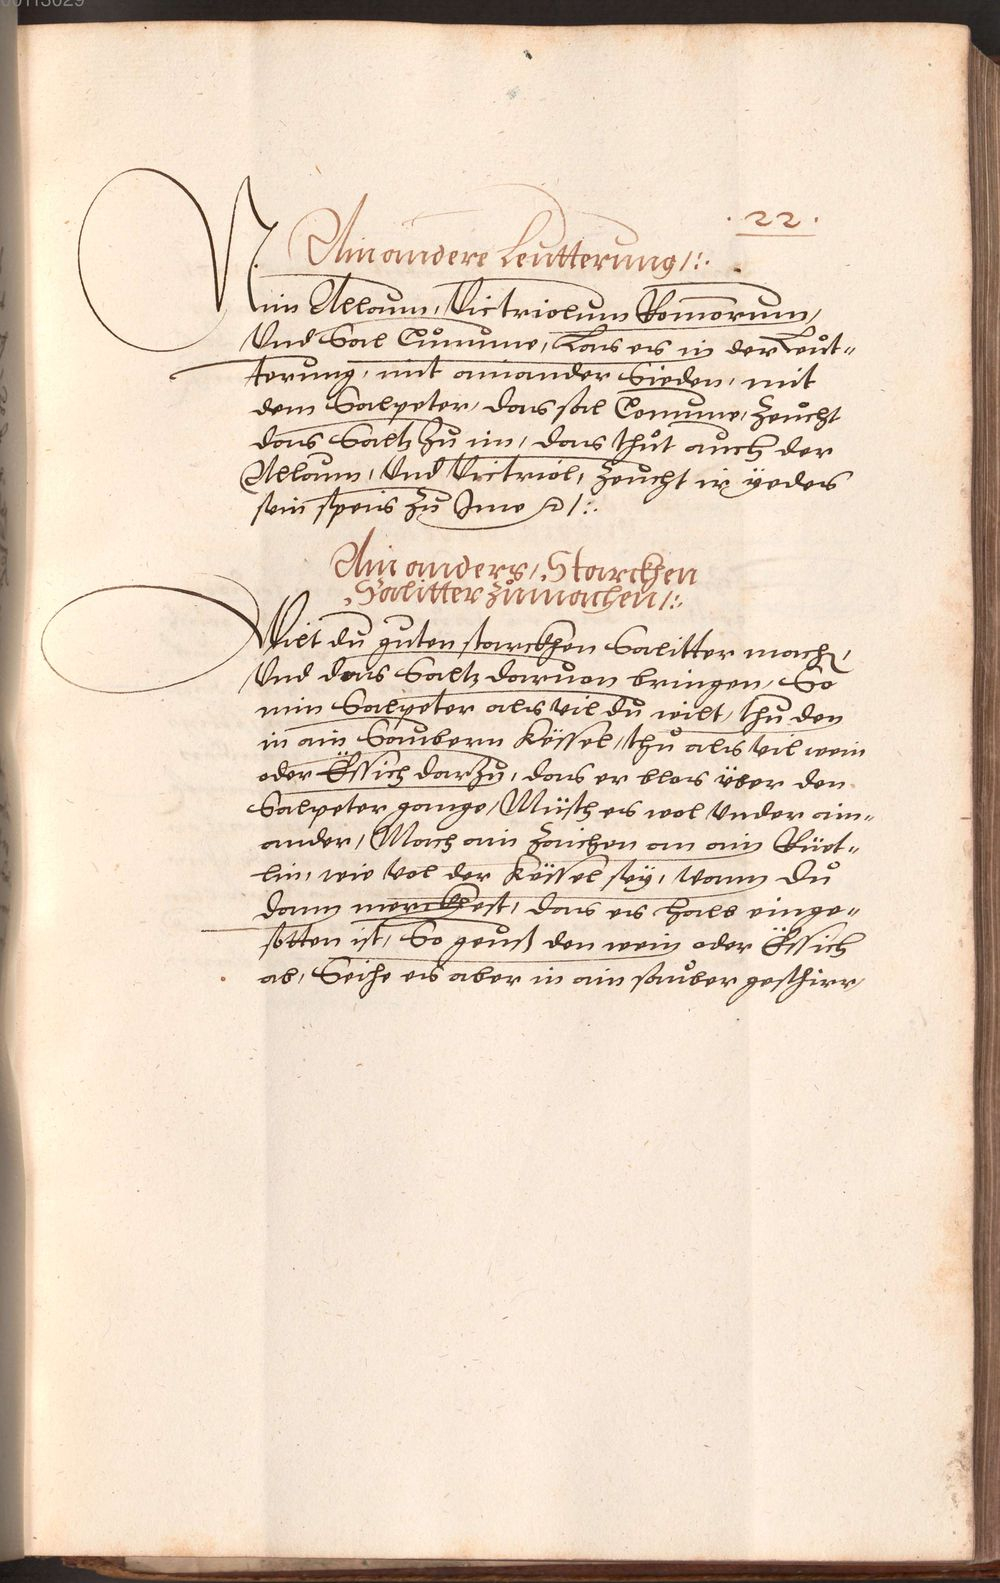 00113029
. 22 .
Ain andere Leutterung /:.
Nim Allaun, Victriolum Romorum,
Vnd Sal Cumune, Las es in der Leut-
terung, mit ainander Sieden, mit
dem Salpeter, das sal Comune, Zeucht
das Saltz Zu im, das thut auch der
Allaun, Vnd Victriol, Zeucht ir yedes
sein speis Zu Ime
Ain anders, Starckhen
Salitter zumachen /:.
Wilt du guten starckhen Salitter mach,
Vnd das Saltz daruon bringen, So
nim Salpeter als vil du wilt, thu den
in ain Saubern Kessel, thu als vil wein
oder Essich darzu, das er blos über den
Salpeter gange, Müsch es wol vnder ain-
ander, Mach ain Zaichen an ain Rüet-
lin, wie vol der Kessel sey, wann du
dann merckhest, das es halb einge-
sotten ist, So geuß den wein oder Essich
ab, Seihe es aber in ain sauber geschirr,